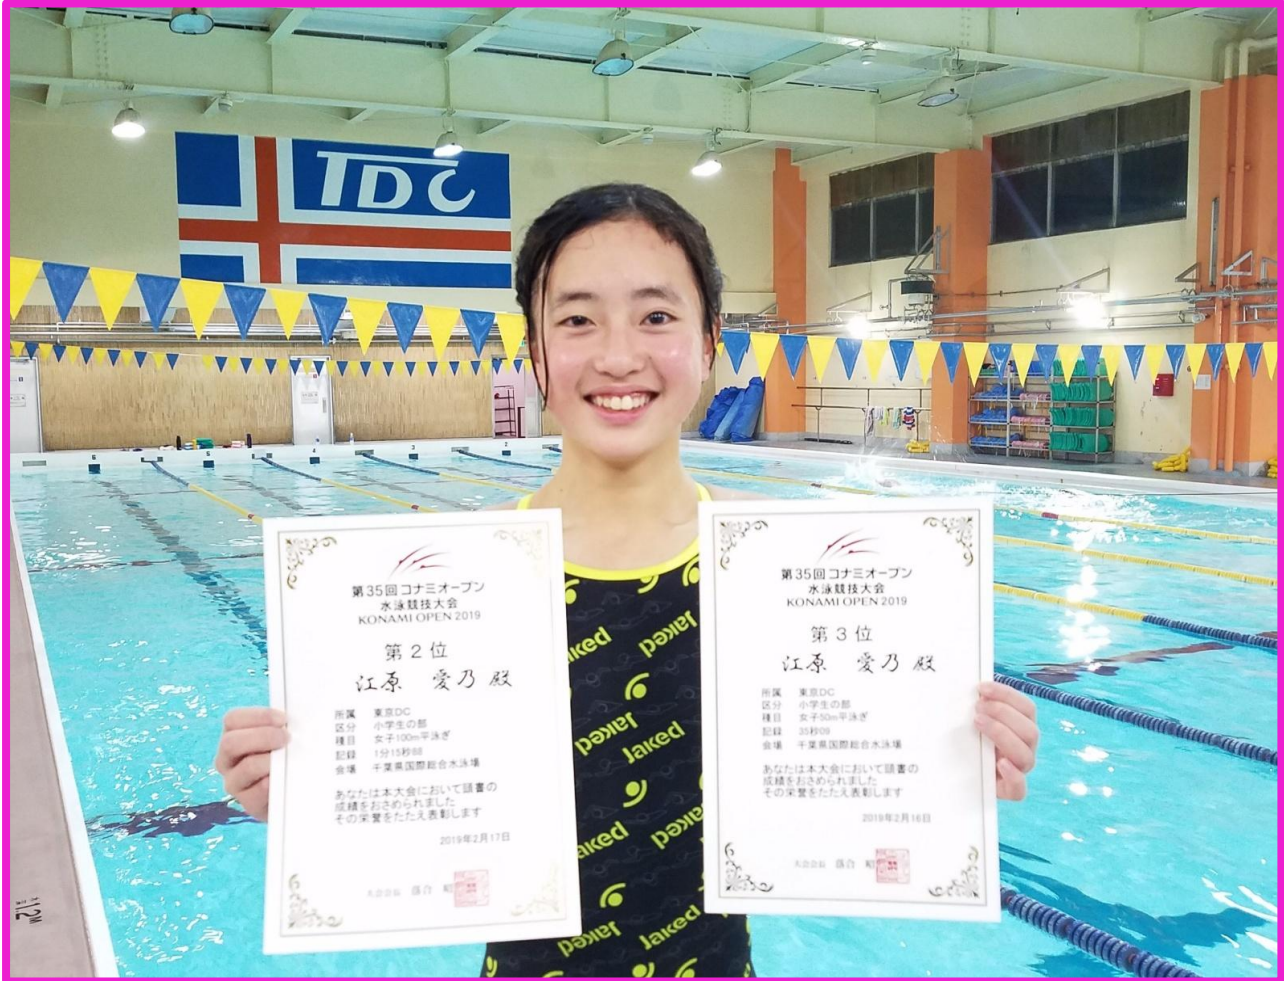 TDC
第35回コナミオープン
水泳競技大会
KONAMI OPEN 2019
第2位
江原 愛乃 殿
所属 東京DC
区分 小学生の部
種目 女子100m平泳ぎ
記録 1分15秒88
会場 千葉県国際総合水泳場
あなたは本大会において頭書の
成績をおさめられました
その栄誉をたたえ表彰します
2019年2月17日
大会会長 落合 昭
第35回コナミオープン
水泳競技大会
KONAMI OPEN 2019
第3位
江原 愛乃 殿
所属 東京DC
区分 小学生の部
種目 女子50m平泳ぎ
記録 35秒09
会場 千葉県国際総合水泳場
あなたは本大会において頭書の
成績をおさめられました
その栄誉をたたえ表彰します
2019年2月16日
大会会長 落合 昭
Jaked
Jaked
Jaked
Jaked
Jaked
Jaked
Jaked
Jaked
6
5
4
3
2
1.2M